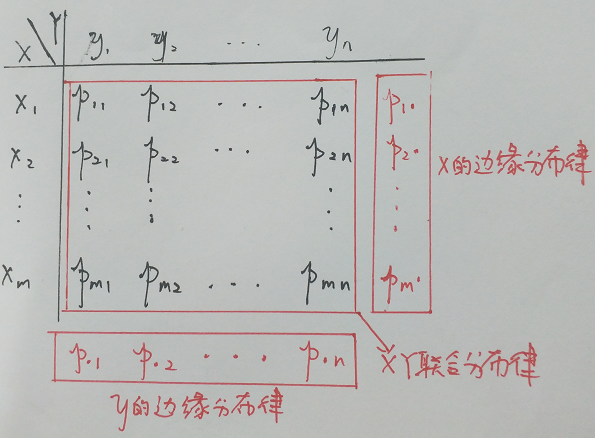 X Y y₁ y₂ ··· yₙ
x₁ p₁₁ p₁₂ ··· p₁ₙ p₁.
x₂ p₂₁ p₂₂ ··· p₂ₙ p₂.
X的边缘分布律
⋮ ⋮ ⋮ ⋮ ⋮
xₘ pₘ₁ pₘ₂ ··· pₘₙ pₘ.
p.₁ p.₂ ··· p.ₙ
XY联合分布律
y的边缘分布律